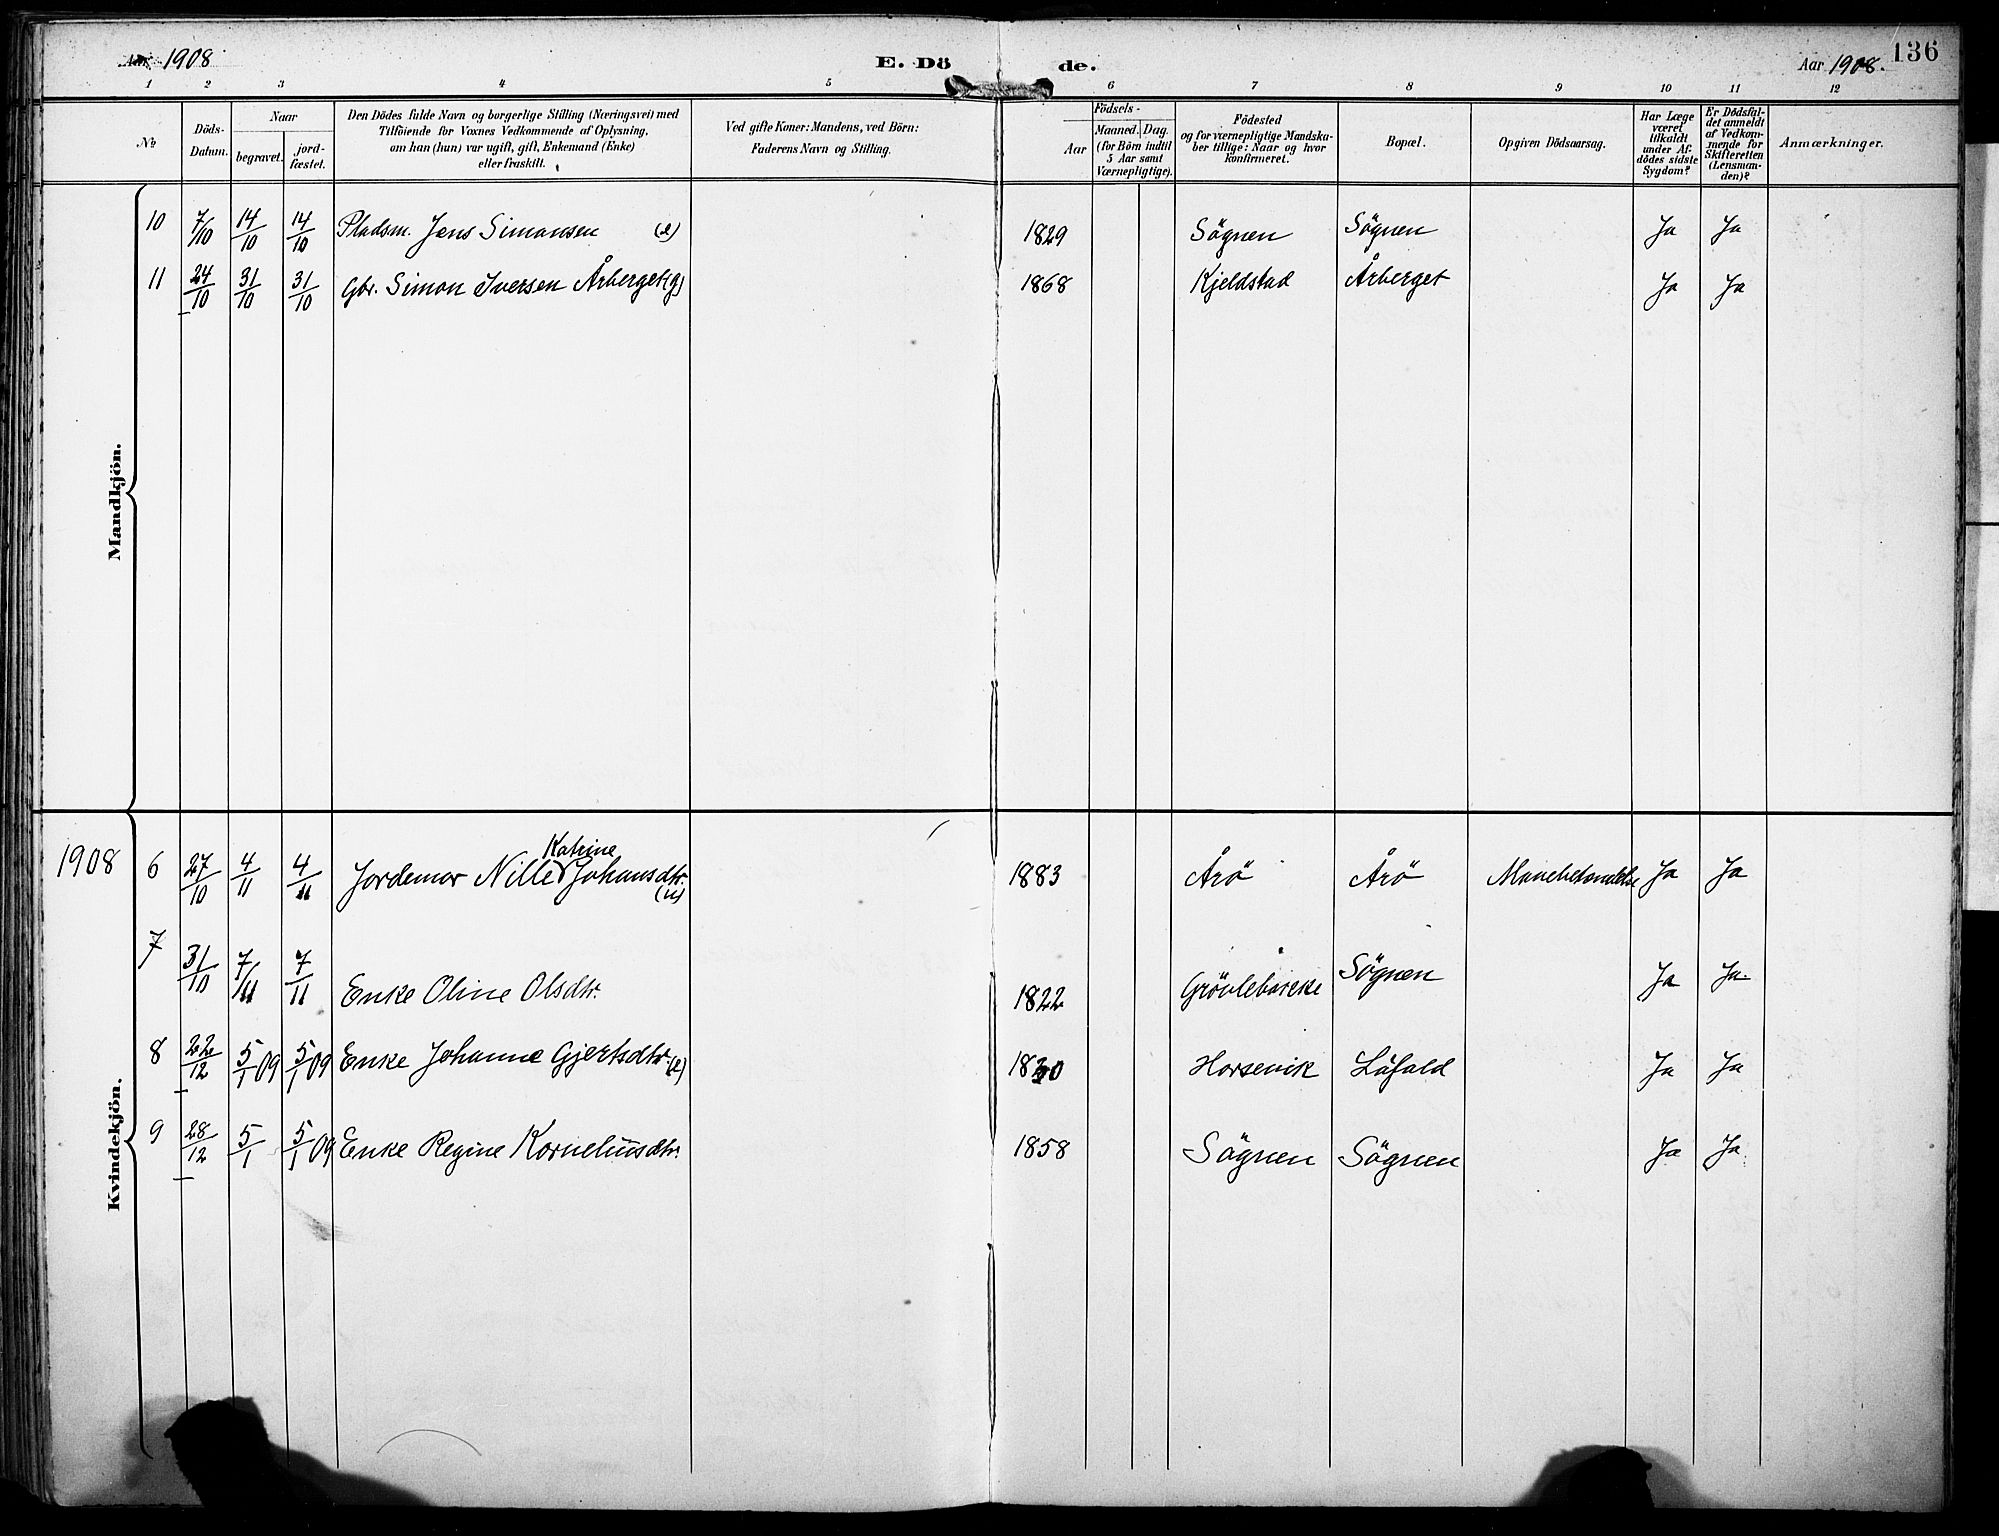 Aar 1908 E. Dö de. Aar 1908. 136
1 2 3 4 5 6 7 8 9 10 11 12
No
Döds-Datum.
Naar
begravet.
jord-fæstet.
Den Dödes fulde Navn og borgerlige Stilling (Næringsvei) med
Tilföiende for Voxnes Vedkommende af Oplysning,
om han (hun) var ugift, gift, Enkemand (Enke)
eller fraskilt.
Ved gifte Koner: Mandens, ved Börn:
Faderens Navn og Stilling.
Födsels-
Aar
Maaned. Dag.
(for Börn indtil
5 Aar samt
Værnepligtige).
Födested
og for værnepligtige Mandska-
ber tillige: Naar og hvor
konfirmeret.
Bopæl.
Opgiven Dödsaarsag.
Har Læge
været
tilkaldt
under Af-
dödes sidste
Sygdom?
Er Dödsfal-
det anmeldt
af Vedkom-
mende for
Skifteretten
(Lensman-
den)?
Anmærkninger.
Mandkjön.
10 7/10 14/10 14/10 Pladsm. Jens Simonsen (e) 1829 Sögnen Sögnen Ja Ja
11 24/10 31/10 31/10 Gbr. Simon Iversen Årberget (g) 1868 Kjeldstad Årberget Ja Ja
Kvindekjön.
Katrine
1908 6 27/10 4/11 4/11 Jordemor Nille Johansdtr. (u) 1883 Årö Årö Mavebetændelse Ja Ja
7 31/10 7/11 7/11 Enke Oline Olsdtr. 1822 Sögnen Ja Ja.
8 22/12 5/1 09 5/1 09 Enke Johanne Gjertsdtr. (e) 1830 Horsevik Ja Ja
9 28/12 5/1 5/1 09 Enke Regine Korneliusdtr. 1858 Sögnen Sögnen Ja Ja.